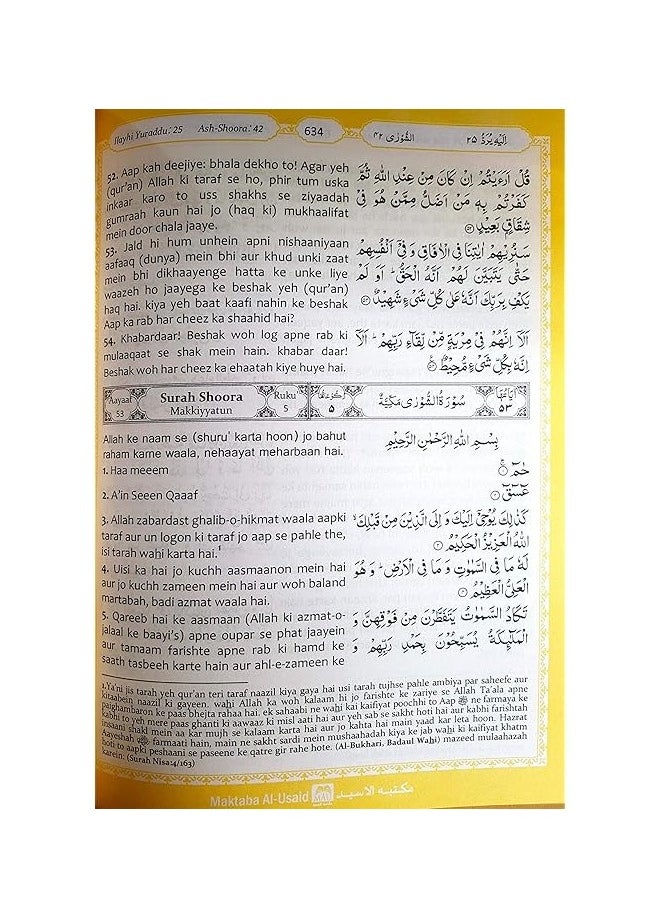 Ilayhi Yuraddu: 25 Ash-Shoora: 42 634 الشُّوْرٰى ۴۲ اِلَيْهِ يُرَدُّ ۲۵
52. Aap kah deejiye: bhala dekho to! Agar yeh
(qur'an) Allah ki taraf se ho, phir tum uska
inkaar karo to uss shakhs se ziyaadah
gumraah kaun hai jo (haq ki) mukhaalifat
mein door chala jaaye.
قُلْ اَرَءَيْتُمْ اِنْ كَانَ مِنْ عِنْدِ اللّٰهِ ثُمَّ
كَفَرْتُمْ بِهٖ مَنْ اَضَلُّ مِمَّنْ هُوَ فِيْ
شِقَاقٍۭ بَعِيْدٍ ۝۵۲
53. Jald hi hum unhein apni nishaaniyaan
aafaaq (dunya) mein bhi aur khud unki zaat
mein bhi dikhaayenge hatta ke unke liye
waazeh ho jaayega ke beshak yeh (qur'an)
haq hai. kiya yeh baat kaafi nahin ke beshak
Aap ka rab har cheez ka shaahid hai?
سَنُرِيْهِمْ اٰيٰتِنَا فِي الْاٰفَاقِ وَفِيْٓ اَنْفُسِهِمْ
حَتّٰى يَتَبَيَّنَ لَهُمْ اَنَّهُ الْحَقُّ ؕ اَوَ لَمْ
يَكْفِ بِرَبِّكَ اَنَّهٗ عَلٰى كُلِّ شَيْءٍ شَهِيْدٌ ۝۵۳
54. Khabardaar! Beshak woh log apne rab ki
mulaaqaat se shak mein hain. khabar daar!
Beshak woh har cheez ka ehaatah kiye huye hai.
اَلَآ اِنَّهُمْ فِيْ مِرْيَةٍ مِّنْ لِّقَآءِ رَبِّهِمْ ؕ اَلَآ
اِنَّهٗ بِكُلِّ شَيْءٍ مُّحِيْطٌ ۝۵۴
Aayaat 53 Surah Shoora Makkiyyatun Ruku 5 رُكُوْعَاتُهَا ۵ سُوْرَةُ الشُّوْرٰى مَكِّيَّةٌ اٰيَاتُهَا ۵۳
Allah ke naam se (shuru' karta hoon) jo bahut
raham karne waala, nehaayat meharbaan hai.
بِسْمِ اللّٰهِ الرَّحْمٰنِ الرَّحِيْمِ
1. Haa meeem
حٰمٓ ۝۱
2. A'in Seeen Qaaaf
عٓسٓقٓ ۝۲
3. Allah zabardast ghalib-o-hikmat waala aapki
taraf aur un logon ki taraf jo aap se pahle the,
isi tarah wahi karta hai.¹
كَذٰلِكَ يُوْحِيْٓ اِلَيْكَ وَ اِلَى الَّذِيْنَ مِنْ قَبْلِكَ ۙ
اللّٰهُ الْعَزِيْزُ الْحَكِيْمُ ۝۳
4. Uisi ka hai jo kuchh aasmaanon mein hai
aur jo kuchh zameen mein hai aur woh baland
martabah, badi azmat waala hai.
لَهٗ مَا فِي السَّمٰوٰتِ وَ مَا فِي الْاَرْضِ ؕ وَ هُوَ
الْعَلِيُّ الْعَظِيْمُ ۝۴
5. Qareeb hai ke aasmaan (Allah ki azmat-o-
jalaal ke baayi's) apne oupar se phat jaayein
aur tamaam farishte apne rab ki hamd ke
saath tasbeeh karte hain aur ahl-e-zameen ke
تَكَادُ السَّمٰوٰتُ يَتَفَطَّرْنَ مِنْ فَوْقِهِنَّ وَ
الْمَلٰٓئِكَةُ يُسَبِّحُوْنَ بِحَمْدِ رَبِّهِمْ وَ
1. Ya'ni jis tarah yeh qur'an teri taraf naazil kiya gaya hai usi tarah tujhse pahle ambiya par saheefe aur
kitaabein naazil ki gayeen. wahi Allah ka woh kalaam hi jo farishte ke zariye se Allah Ta'ala apne
paighambaron ke paas bhejta rahaa hai. ek sahaabi ne wahi kai kaifiyat poochhi to Aap ﷺ ne farmaya ke
kabhi to yeh mere paas ghanti ki aawaaz ki misl aati hai aur yeh sab se sakht hoti hai aur kabhi farishtah
insaani shakl mein aa kar mujh se kalaam karta hai aur jo kahta hai main yaad kar leta hoon. Hazrat
Aayeshah farmaati hain, main ne sakht sardi mein mushaahadah kiya ke jab wahi ki kaifiyat khatm
hoti to aapki peshaani se paseene ke qatre gir rahe hote. (Al-Bukhari, Badaul Wahi) mazeed mulaahazah
karein: (Surah Nisa:4/163)
Maktaba Al-Usaid مكتبه الاسيد